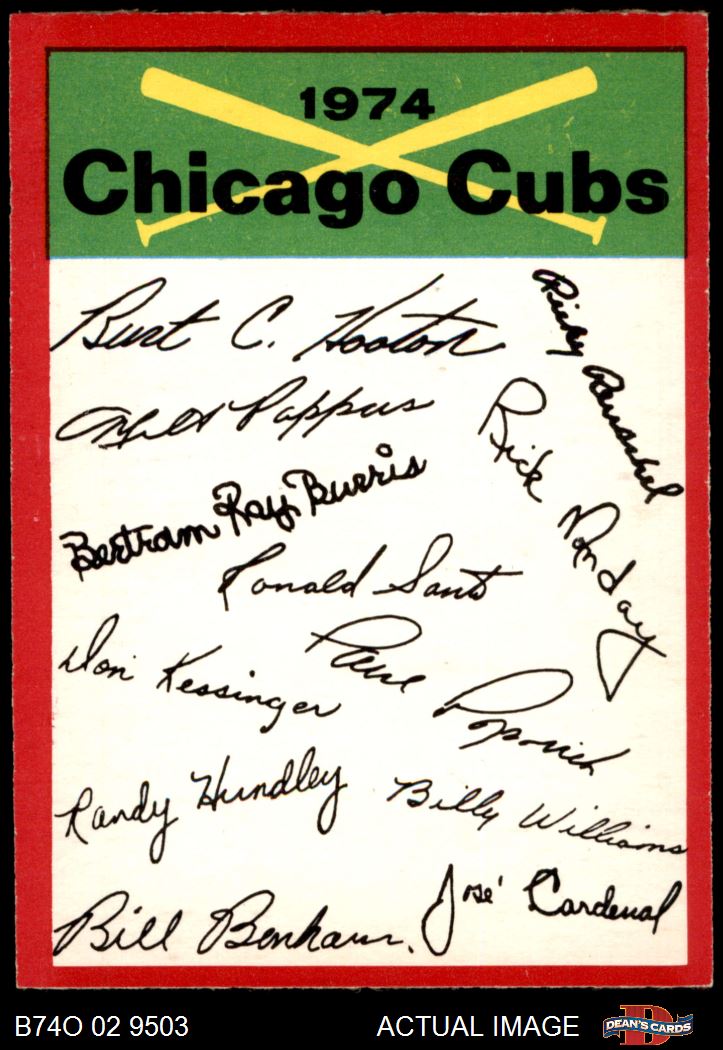 1974
Chicago Cubs
Burt C. Hooton
Ricky Reuschel
Milt Pappas
Rick Monday
Bertram Ray Burris
Ronald Santo
Don Kessinger
Paul Popovich
Randy Hundley
Billy Williams
José Cardenal
Bill Bonham.
B74O 02 9503
ACTUAL IMAGE
D
DEAN'S CARDS